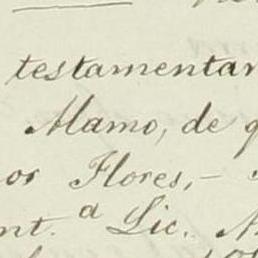 testamentar
Alamo, de q
or Flores, –
nt. a Lic. M